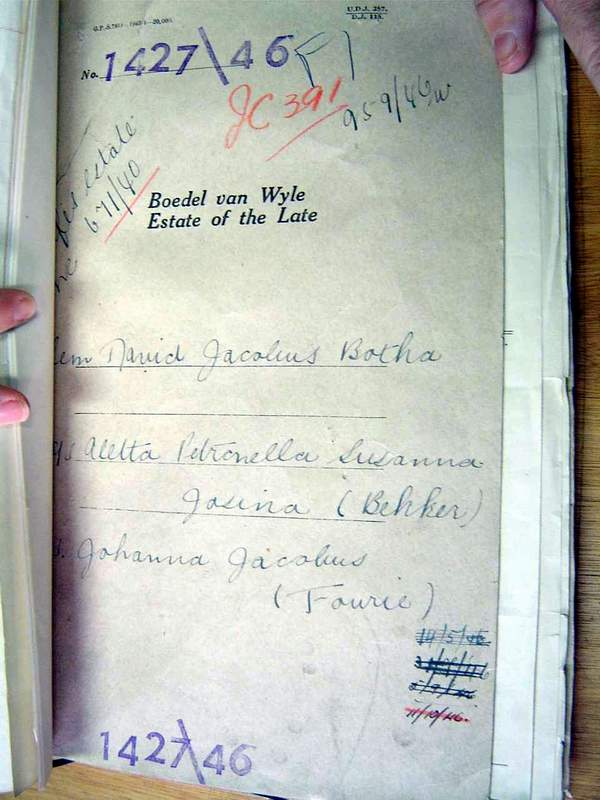 U.D.J. 257.
D.J. 118.
No. 1427\46
JC 391
959/46
estate
671/40
Boedel van Wyle
Estate of the Late
em David Jacobus Botha
Aletta Petronella Susanna
Josina (Bekker)
Johanna Jacobus
(Fourie)
14/5/46
11/10/46.
1427\46